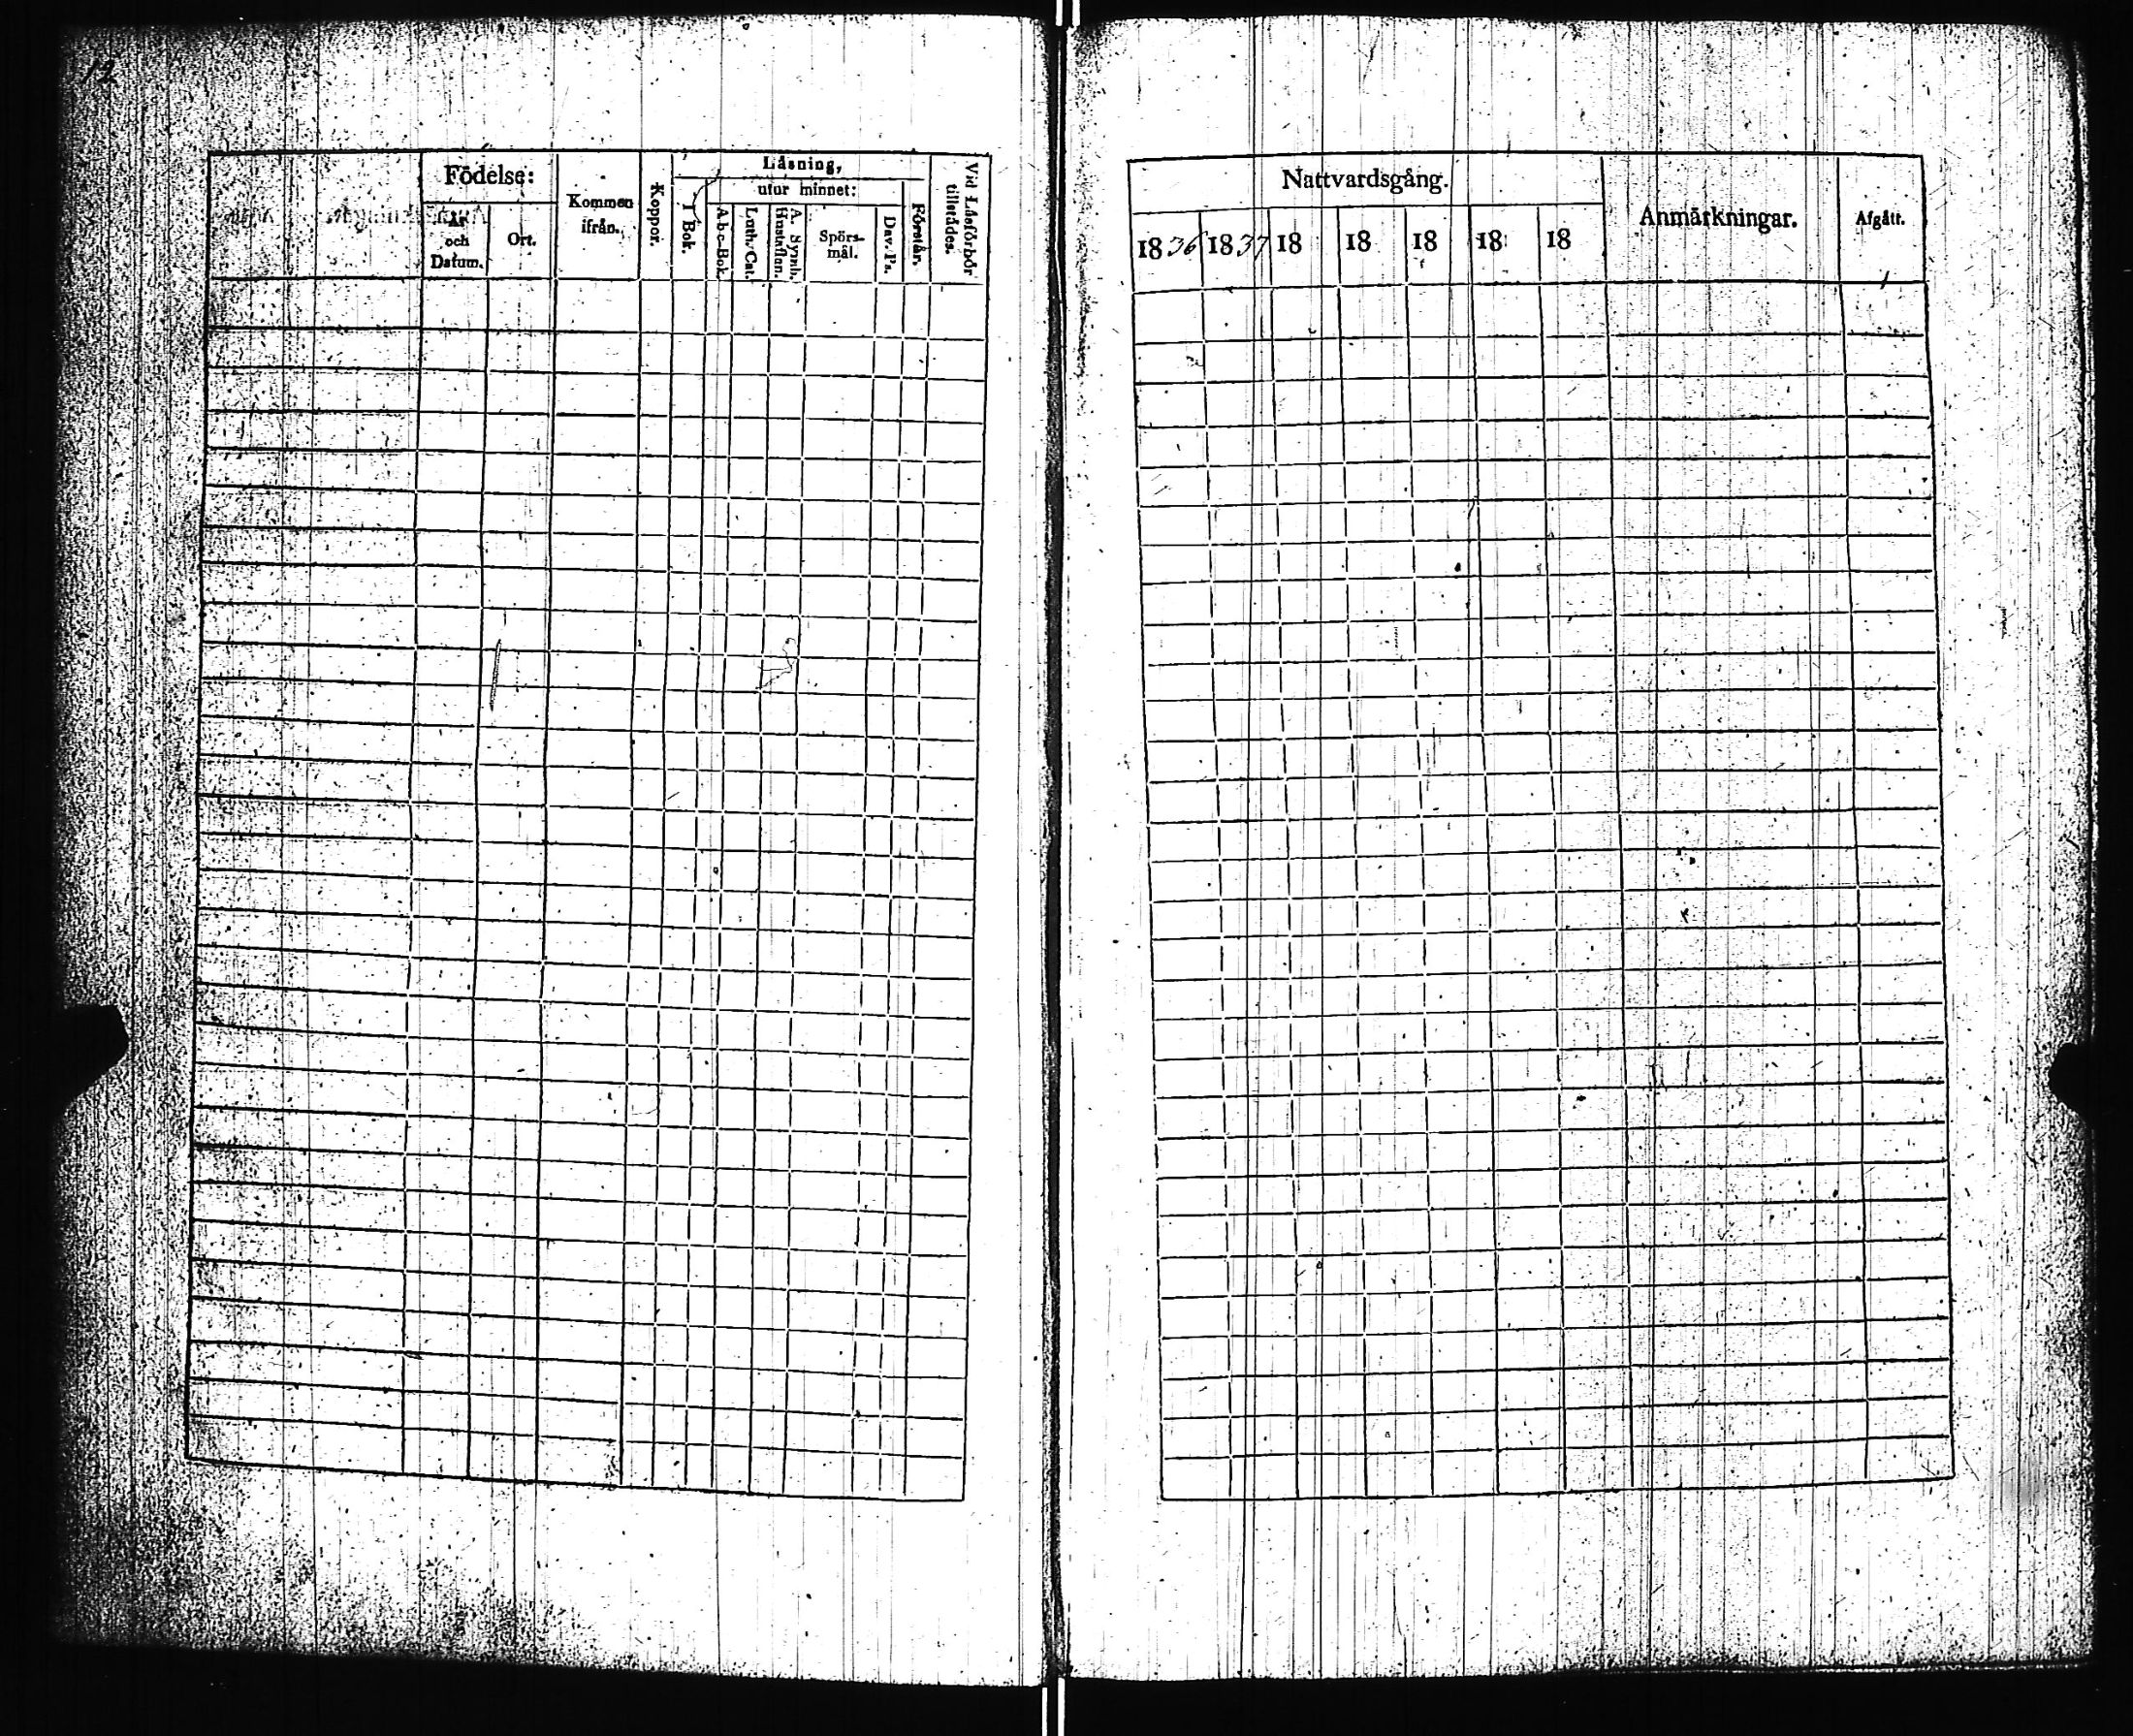 12
Födelse:
År
och
Datum.
Ort.
Kommen
ifrån.
Koppor.
Läsning,
I Bok.
utur minnet:
A-b-c-Bok.
Luth. Cat.
A. Symb.
Hustaflan.
Spörs-
mål.
Dav. Ps.
Förstår.
Vid Läsförhör
tillstädes.
Nattvardsgång.
1836 1837 18 18 18 18 18
Anmärkningar.
Afgått.